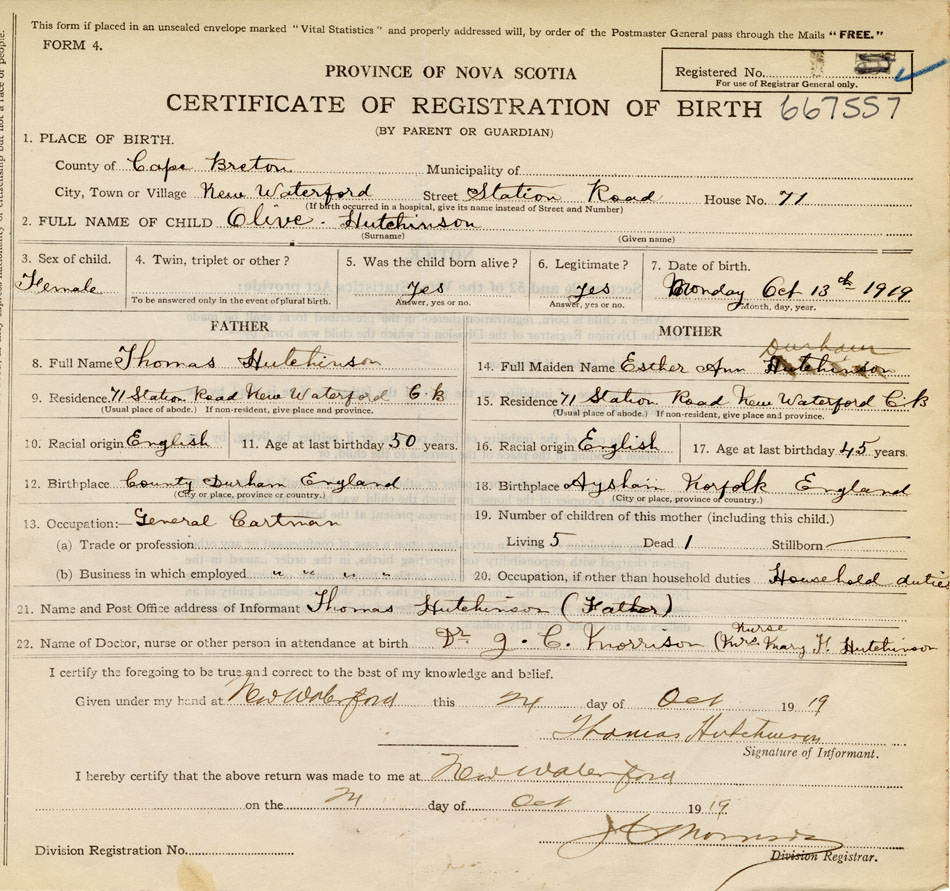 This form if placed in an unsealed envelope marked "Vital Statistics" and properly addressed will, by order of the Postmaster General pass through the Mails "FREE."
FORM 4.
Registered No.
For use of Registrar General only.
PROVINCE OF NOVA SCOTIA
CERTIFICATE OF REGISTRATION OF BIRTH 667557
(BY PARENT OR GUARDIAN)
1. PLACE OF BIRTH.
County of Cape Breton Municipality of
City, Town or Village New Waterford Street Station Road House No. 71
(If birth occurred in a hospital, give its name instead of Street and Number)
2. FULL NAME OF CHILD Olive. Hutchinson
(Surname) (Given name)
3. Sex of child. 4. Twin, triplet or other? 5. Was the child born alive? 6. Legitimate? 7. Date of birth.
Female Yes Yes Monday Oct 13th 1919
To be answered only in the event of plural birth. Answer, yes or no. Answer, yes or no. Month, day, year.
FATHER MOTHER
Durham
8. Full Name Thomas Hutchinson 14. Full Maiden Name Esther Ann Hutchinson
9. Residence. 71 Station Road New Waterford C.B 15. Residence 71 Station Road New Waterford C.B
(Usual place of abode.) If non-resident, give place and province. (Usual place of abode.) If non-resident, give place and province.
10. Racial origin English 11. Age at last birthday 50 years. 16. Racial origin English 17. Age at last birthday 45 years.
12. Birthplace County Durham England 18. Birthplace Norfolk England
(City or place, province or country.) (City or place, province or country.)
13. Occupation:— General Cartman 19. Number of children of this mother (including this child.)
(a) Trade or profession Living 5 Dead 1 Stillborn
(b) Business in which employed " " " " 20. Occupation, if other than household duties Household duties
21. Name and Post Office address of Informant Thomas Hutchinson (Father)
Nurse
22. Name of Doctor, nurse or other person in attendance at birth Dr J. C. Morrison (Mrs Mary H Hutchinson
I certify the foregoing to be true and correct to the best of my knowledge and belief.
Given under my hand at New Waterford this 24 day of Oct 19 19
Thomas Hutchinson
Signature of Informant.
I hereby certify that the above return was made to me at New Waterford
on the 24 day of Oct 19 19.
Morrison
Division Registration No. Division Registrar.